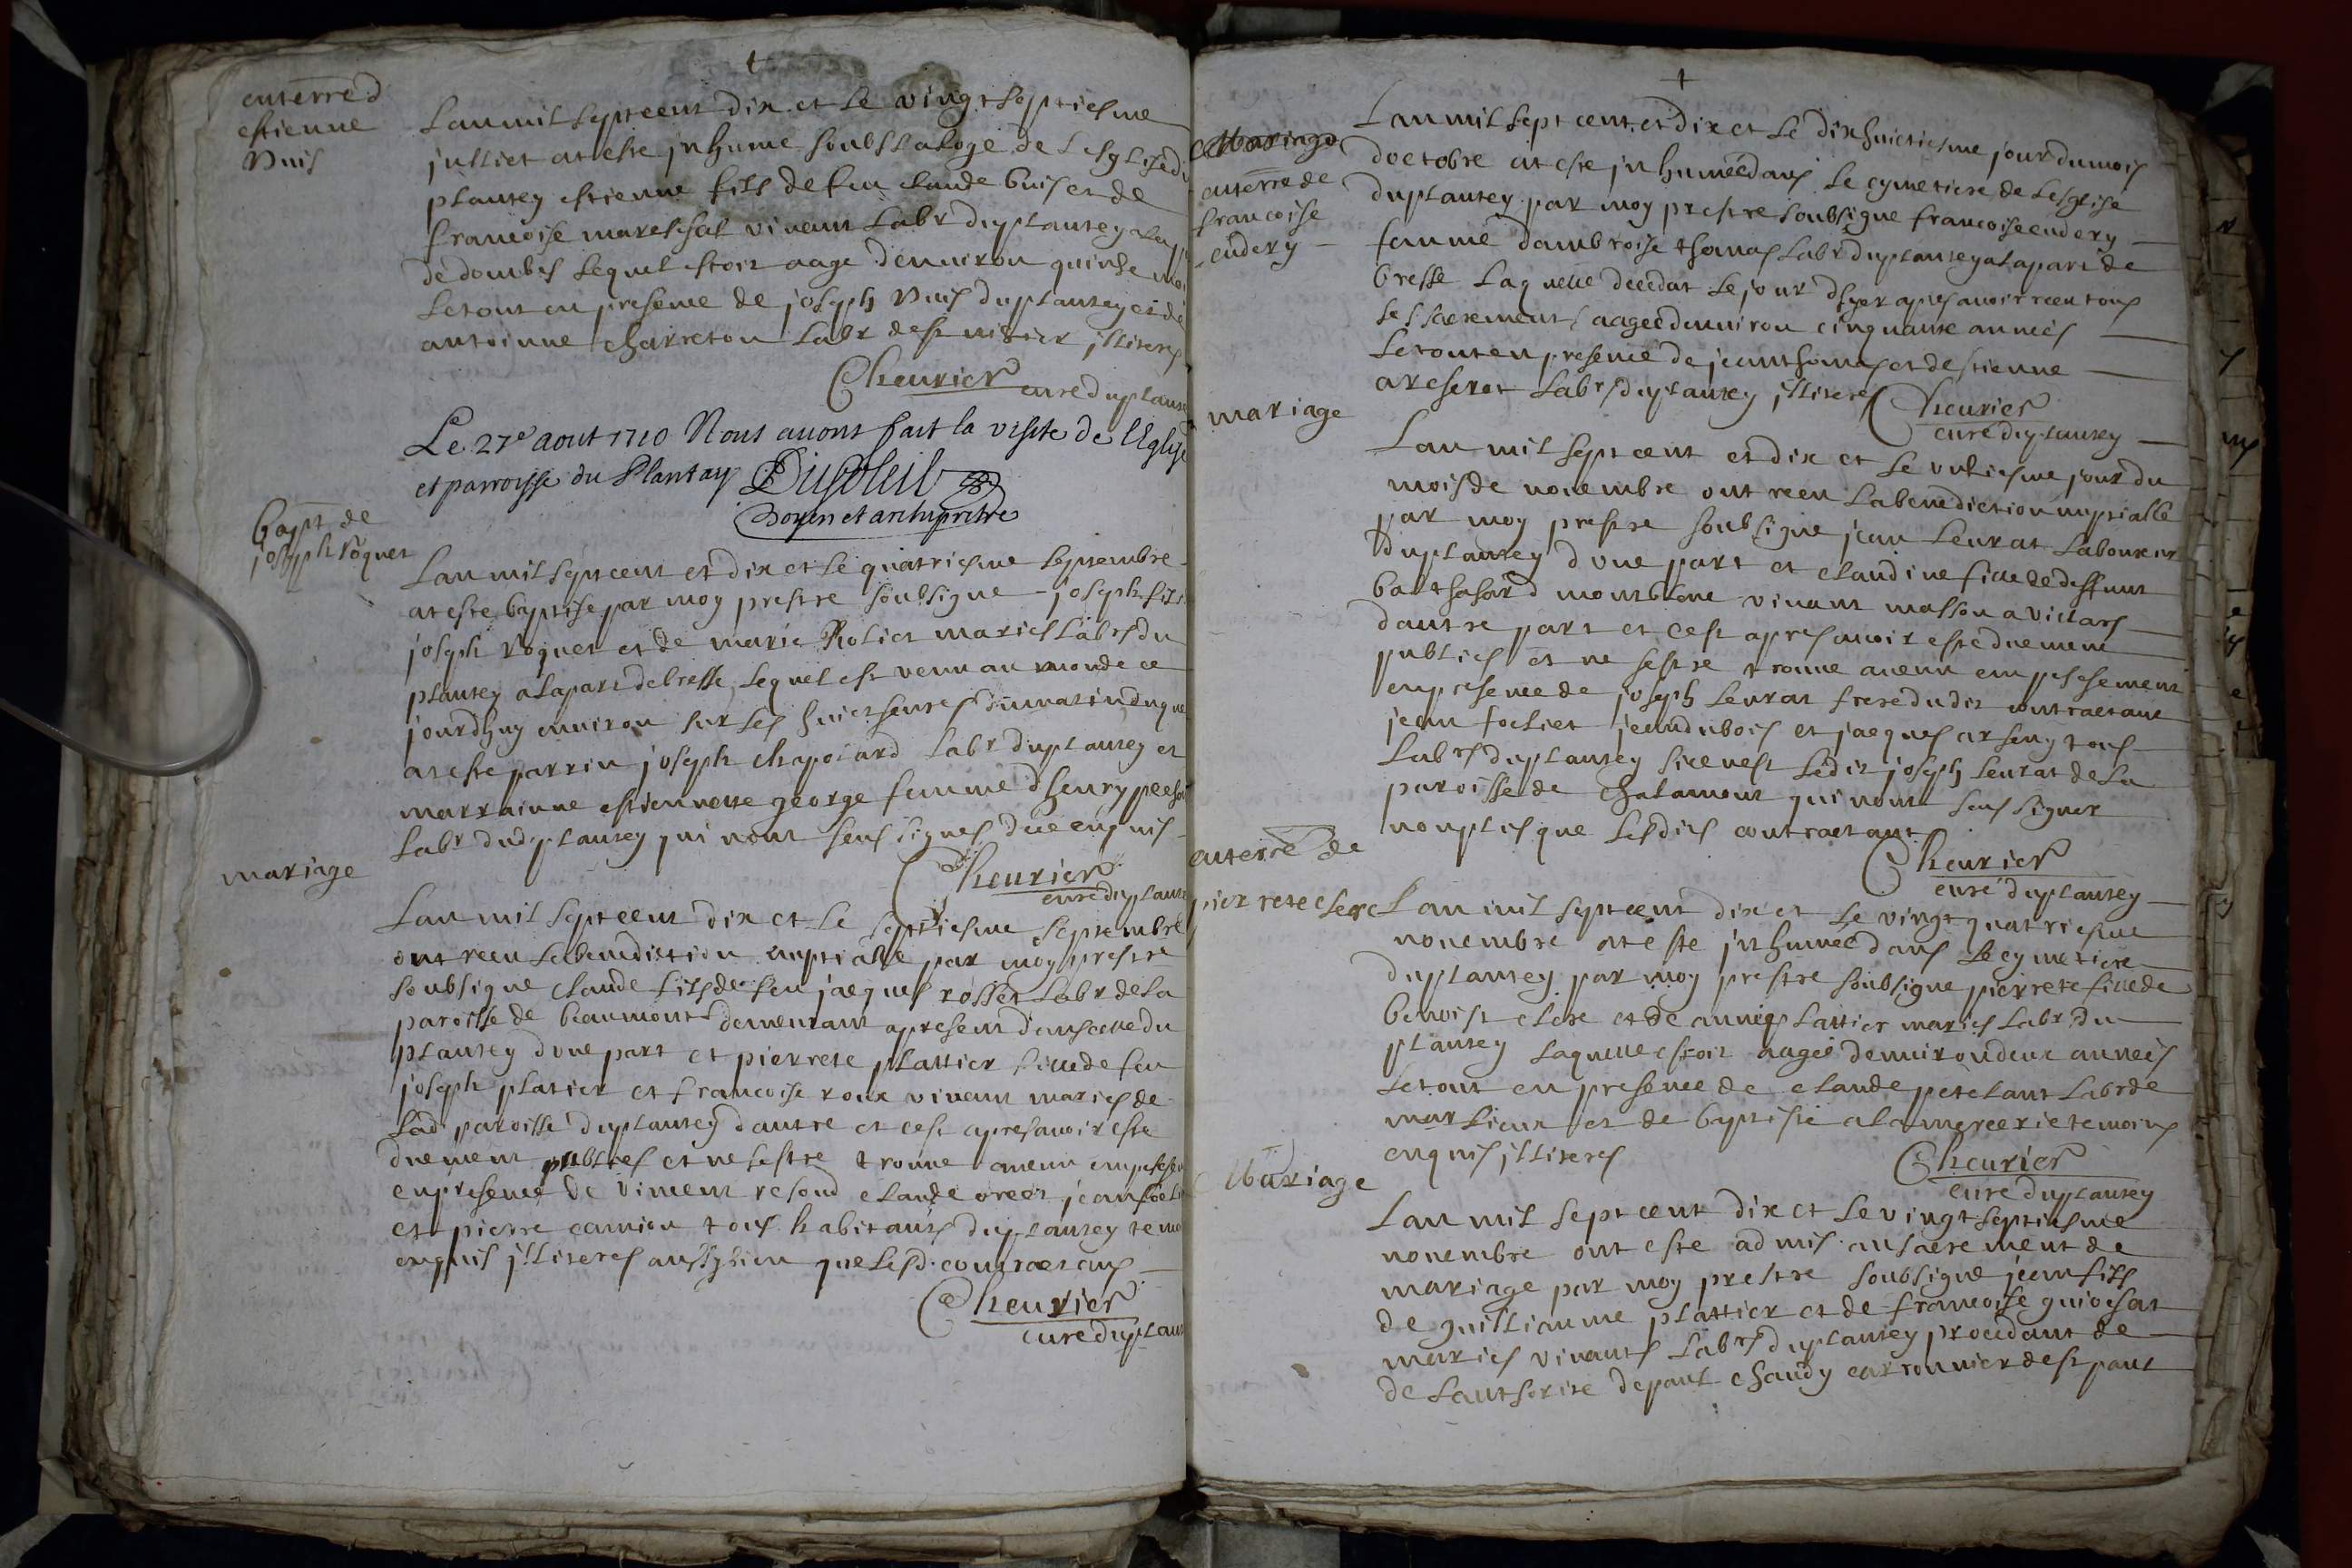 enterre d
estienne
Buis
Lan mil sept cent dix et le vingt septiesme
julliet at este jnhume soubs la loge de lesglise du
plantey estienne fils de feu claude buis et de
francoise mareschal vivant labr du plantey a la p
de dombes lequel estoit aage denviron quinse
le tout en presence de joseph Buis du plantey et de
antoinne charreton labr de st nisier jlliteres
Chevrier
cure du plante
Le 27e aout 1710 Nous avons fait la visite de l'Eglise
et parroisse du Plantay Dusoleil
Doyen et archiprêtre
Bapt de
joseph Roquet
Lan mil sept cent et dix et le quatriesme septembre
at este baptise par moy prestre soubsigne joseph fils
joseph Roquet et de marie Roliet maries labrs du
plantey a la part de bresse lequel est venu au monde ce
jourdhuy environ sur les huict heures du matin duquel
at este parrin joseph chapolard labr du plantey et
marrainne estiennette george femme dhenry
labr dud plantey qui nont seus signes de ce enquis
Chevrier
cure du plante
mariage
Lan mil sept cent dix et le septiesme septembre
ont receu la benediction nuptialle par moy prestre
soubsigne claude fils de feu jacques rosset labr de la
paroisse de beaumont demeurant apresent dans celle du
plantey dune part et pierrete plattier fille de feu
joseph platier et francoise roux vivant maries de
lad paroisse du plantey dautre et cest apres avoir este
duement publies et ne sestre trouve aucun empesche
en presence de vincent resond claude orcet jean foc
et pierre camion tous habitants du plantey temo
enquis jlliteres aussy bien que lesd. contractans
Chevrier
cure du plant
Mariage
enterre de
francoise
cudery
Lan mil sept cent et dix et le dixhuictiesme jour du mois
doctobre at este jnhumée dans le cymetiere de lesglise
du plantey par moy prestre soubsigne francoise cudery
femme dambroise thomas labr du plantey a la part de
bresse laquelle decedat le jour dhyer apres avoir receu tous
ses sacrements aagee denviron cinquante années
le tout en presence de jean thomas et de stienne
arseret labrs du plantey jlliteres Chevrier
cure du plantey
mariage
Lan mil sept cent et dix et le unziesme jour du
mois de novembre ont receu la benediction nuptialle
par moy prestre soubsigne jean leurat laboureur
du plantey dune part et claudine fille de deffunt
balthasard montblanc vivant masson a villars
dautre part et cest apres avoir este duement
publies et ne sestre trouve aucun empeschement
en presence de joseph leurat frere dudit contractant
jean focliet jean dubois et jacques arseny tous
labrs du plantey si ce nest ledit joseph leurat de la
paroisse de chalamont qui nont seus signer
non plus que lesdits contractants
Chevrier
cure du plantey
enterre de
pierrete clere
Lan mil sept cent dix et le vingt quatriesme
novembre at este jnhumée dans le cymetiere
du plantey par moy prestre soubsigne pierrete fille de
benoist clere et de annie lattier maries labr du
plantey laquelle estoit aagée denviron deux années
le tout en presence de claude petelant labr de
marlieux et de baptiste a la mercerie temoins
enquis jlliteres
Chevrier
cure du plantey
Mariage
Lan mil sept cent dix et le vingt septiesme
novembre ont este admis au sacrement de
mariage par moy prestre soubsigne jean fils
de guilliaume plattier et de francoise guiochat
maries vivants labrs du plantey procedant de
de lauthorite de paul chandy cartonnier de st paul